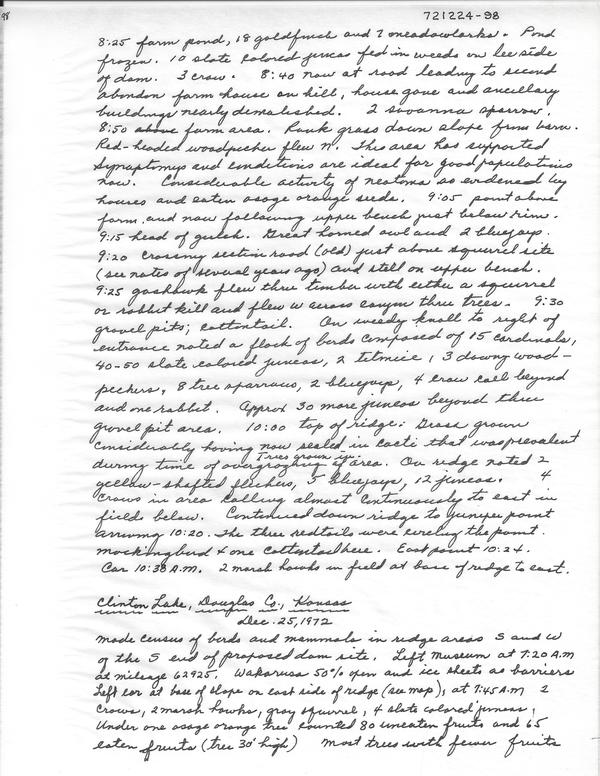 98
721224-98
8:25 farm pond, 18 goldfinch and 7 meadowlarks. Pond
frozen. 10 slate colored juncos fed in weeds on lee side
of dam. 3 crow. 8:40 now at road leading to second
abandon farm house on hill, house gone and ancillary
buildings nearly demolished. 2 savanna sparrow.
8:50 above farm area. Rank grass down slope from barn.
Red-headed woodpecker flew N. This area has supported
Synaptomys and conditions are ideal for good populations
now. Considerable activity of neotoma as evidenced by
houses and eaten osage orange seeds. 9:05 point above
farm and now following upper bench just below rim.
9:15 head of gulch. Great horned owl and 2 bluejays.
9:20 crossing section road (old) just above squirrel site
(see notes of several years ago) and still on upper bench.
9:25 goshawk flew thru timber with either a squirrel
or rabbit kill and flew W across canyon thru trees. 9:30
gravel pits; cottontail. On weedy knoll to right of
entrance noted a flock of birds composed of 15 cardinals,
40-50 slate colored juncos, 2 titmice, 3 downy wood-
peckers, 8 tree sparrows, 2 bluejays, 4 crow call beyond
and one rabbit. Approx 30 more juncos beyond thru
gravel pit area. 10:00 top of ridge: Grass grown
considerably having now sealed in cacti that was prevalent
during time of overgrazing of area. Trees grown up. On ridge noted 2
yellow-shafted flickers, 5 bluejays, 12 juncos. 4
crows in area calling almost continuously to east in
fields below. Continued down ridge to juniper point
arriving 10:20. The three redtails were circling the point.
mockingbird & one cottontail here. East point 10:24.
Car 10:38 A.M. 2 marsh hawks in field at base of ridge to east.
Clinton Lake, Douglas Co., Kansas
Dec. 25, 1972
made census of birds and mammals in ridge areas S and W
of the S end of proposed dam site. Left Museum at 7:20 A.M
at mileage 62925. Wakarusa 50% open and ice sheets as barriers
Left car at base of slope on east side of ridge (see map), at 7:45 A.M 2
crows, 2 marsh hawks, gray squirrel, 4 slate colored juncos,
Under one osage orange tree counted 80 uneaten fruits and 65
eaten fruits (tree 30' high) most trees with fewer fruits